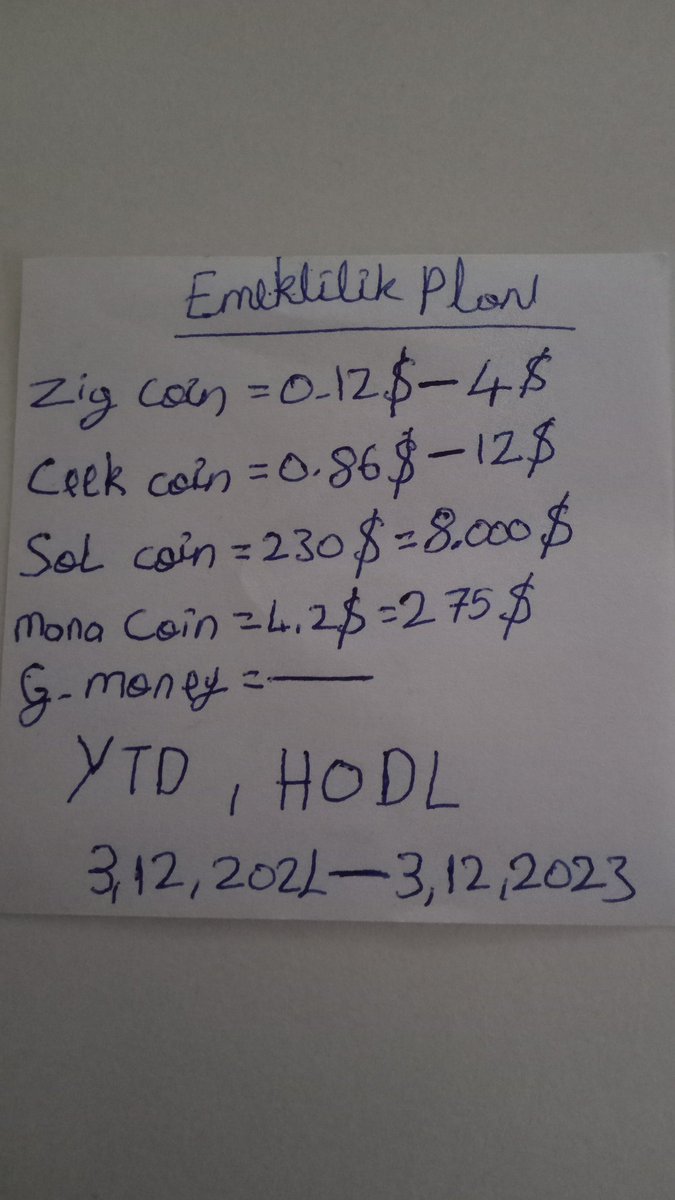 Emeklilik Plan
Zig coin = 0.12$ - 4$
Ceek coin = 0.86$ - 12$
Sol coin = 230$ = 8.000$
Mona Coin = 4.2$ = 275$
G-money = —
YTD, HODL
3,12,2021 — 3,12,2023